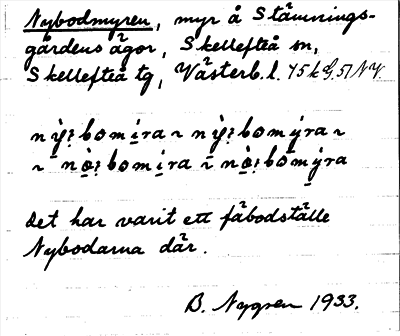 Nybodmyren, myr å Stämnings-
gårdens ägor, Skellefteå sn,
Skellefteå tg, Västerb. l. 
nỳ:bomi̱ra ~ nỳ:bomýra ~
~ nò̱:bomi̱ra ~ nò̱:bomýra
Det har varit ett fäbodställe
Nybodarna där.
B. Nygren 1933.